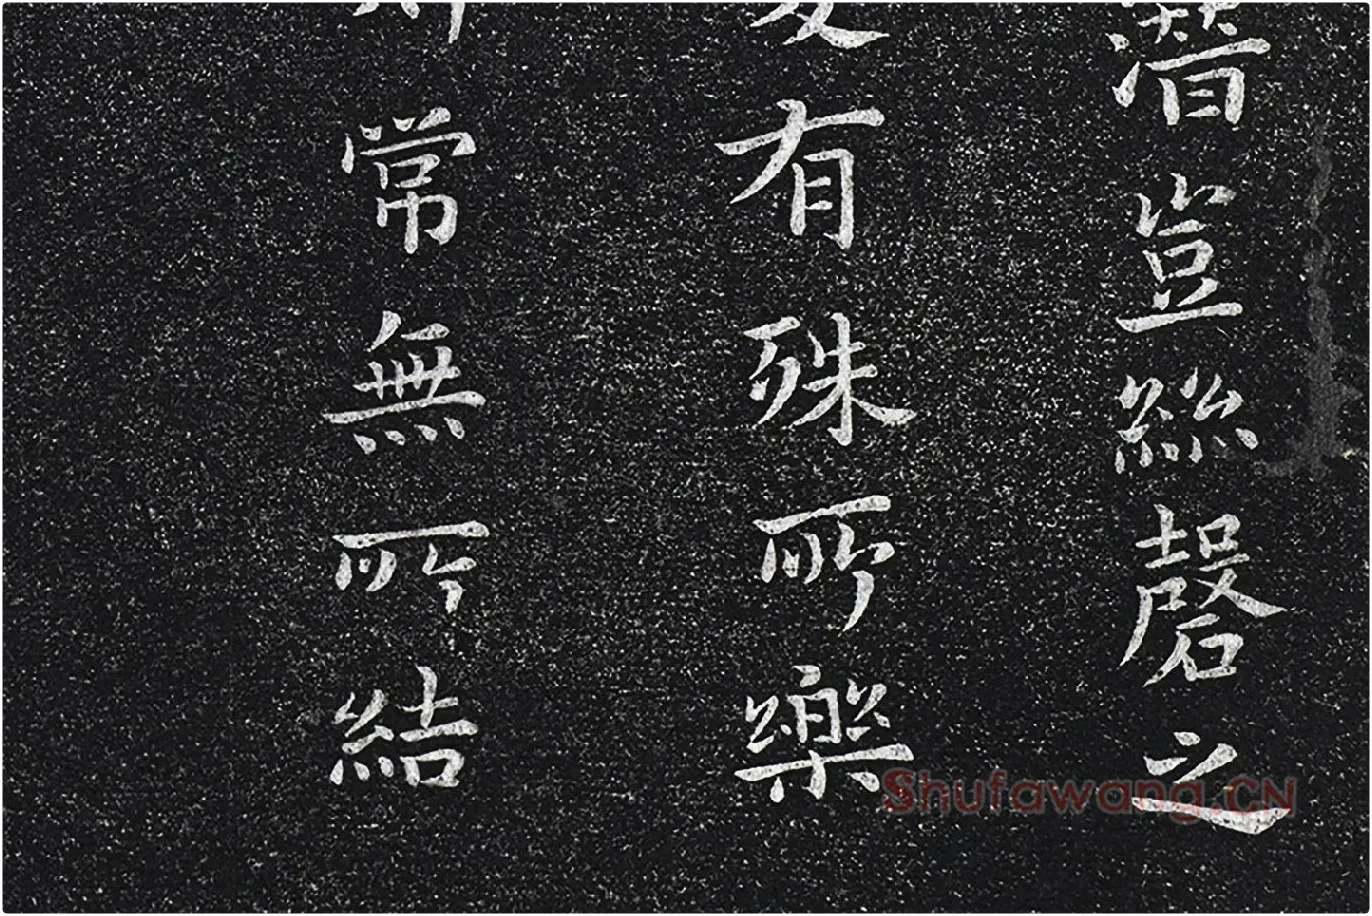 潛豈絲磬之
有殊所樂
常無所結
Shufawang.CN